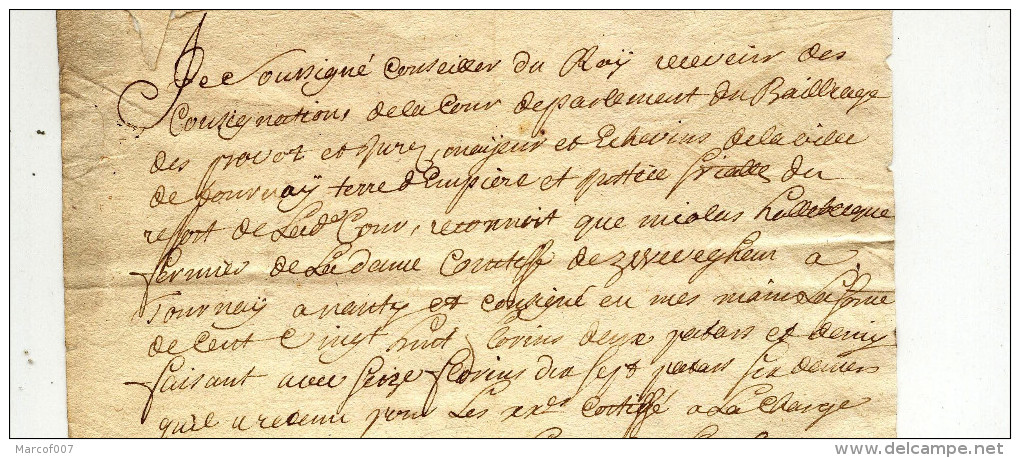 Je Soussigné Conseiller du Roÿ receveur des
Consignations de la Cour de parlement du Bailliage
des provot et Jurez, maÿeur et Echevins de la ville
de Tournaÿ terre d'Empire et du
resort de Lad.e Cour, reconnoit que nicolas hallebecque
fermier de La dame Comtesse de zweveghem a
Tournaÿ a nanty et consigné en mes mains La some
de Cent Vingt huit florins deux patars et demy
faisant avec seize florins dix sept patars six deniers
qu'il a retenu pour Les xxes a La Charge
Marcof007
www.delcampe.net